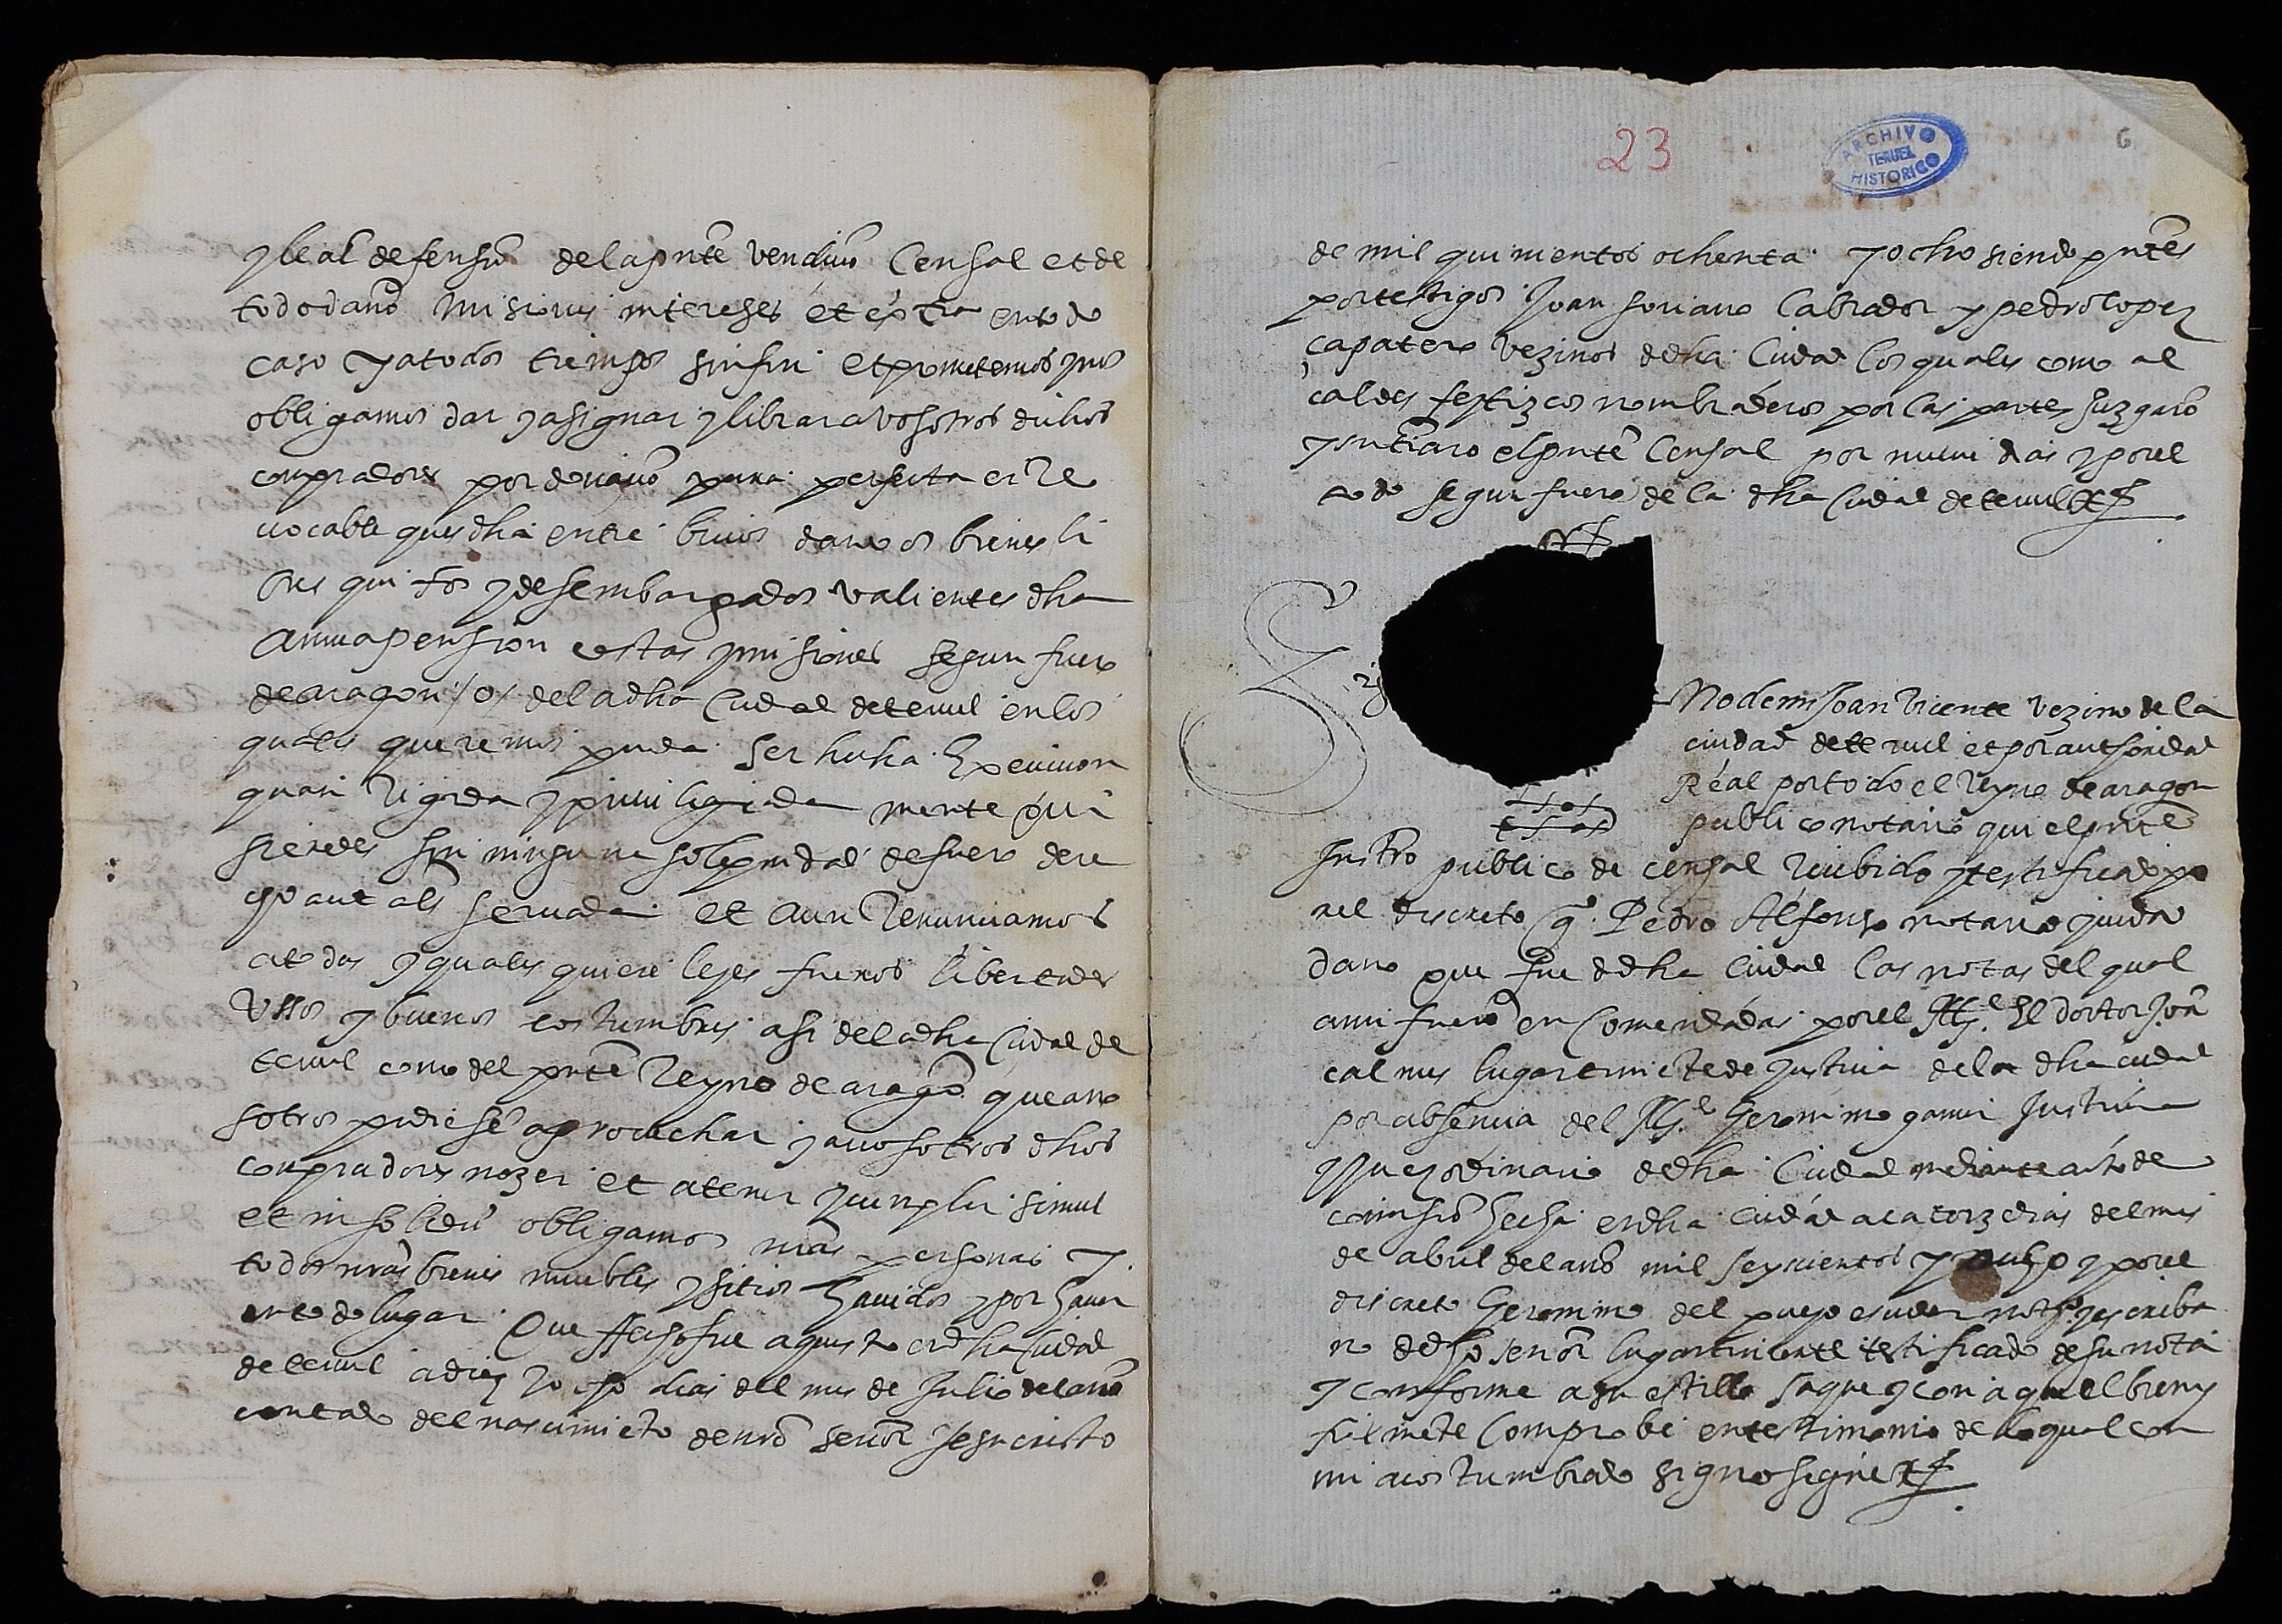 y leal defensiõ dela pnte vendiciõ Censal et de
todo daño misiones intereses et expensa en todo
caso y a todos tiempos sin fin et prometemos y nos
obligamos dar y asignar y librar a vosotros dichos
compradores por donaçiõ pura perfecta et irre
uocable ques dha entre biuos dare os bienes li
bres quitos y desembargados valientes dha
annua pension costas y misiones segun fuero
de aragon /o/ dela dha Ciudad de teruel en los
quales queremos pueda ser hecha Execucion
quan rigida y priuilegiada mente qui
sieredes sin ninguna solepnidad de fuero dere
cho aut als seruada et aun renunciamos
a todas y quales quiere leyes fueros libertades
Ussos y buenos costumbres asi dela dha Ciudad de
teruel como del pnte Reyno de aragõ que a no
sotros pudiese aprouechar y a vosotros dhos
compradores nozer et a tener y cumplir simul
et in solidũ obligamos nras personas y
todos nros bienes muebles y sitios hauidos y por hauer
en todo lugar Que ffecho fue aquesto en dha Ciudad
de teruel a diez y ocho dias del mes de Julio del año
contado del nascimieto de nrõ señor Jesu cristo
23
ARCHIVO
TERUEL
HISTORICO
6
de mil quinientos ochenta y ocho siendo pntes
por testigos Joan soriano labrador y pedro lopez
çapatero vezinos de dha Ciudad los quales como al
caldes festizcos nombraderos por las partes Juzgarõ
y sntẽciaro el pnte Censal por nueue dias y por el
todo segun fuero de la dha Ciudad de teruel
Sig no de mi Joan Vicente vezino de la
ciudad de teruel et por authoridad
Réal por todo el reyno de aragon
publico notario qui el pnte
Instro publico de censal rescibido y testificado po
r el discreto q.º Pedro Alfonso notario y ciuda
dano que fue de dha Ciudad las notas del qual
a mi fuerõ en comendadas por el Ille. El doctor Joã
calmes lugarteniete de justicia dela dha ciudad
por absencia del Ille. Geronimo gamir Justicia
y Juez ordinario de dha Ciudad mediante acto de
comisiõ hecha en dha Ciudad a catorze dias del mes
de abril del año mil seyscientos y ocho y por el
discreto Geronimo del pueyo escuder not.º y escriba
no de dicho señor lugartiniente testificado de su nota
y conforme a su estillo saque y con aquella bien y
fielmete comprobe en testimonio de lo qual con
mi acostumbrado signo signe